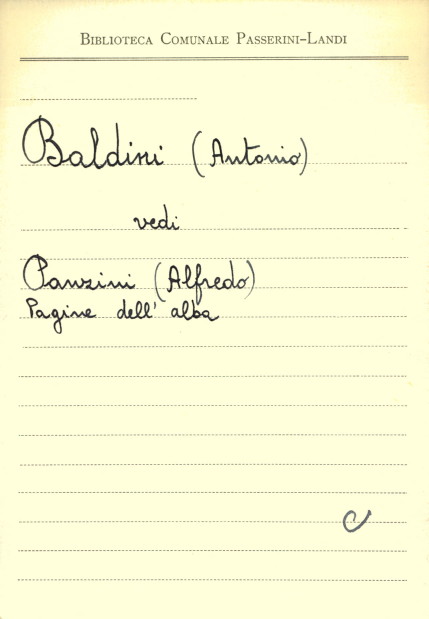 BIBLIOTECA COMUNALE PASSERINI-LANDI
Baldini (Antonio)
vedi
Panzini (Alfredo)
Pagine dell' alba
C